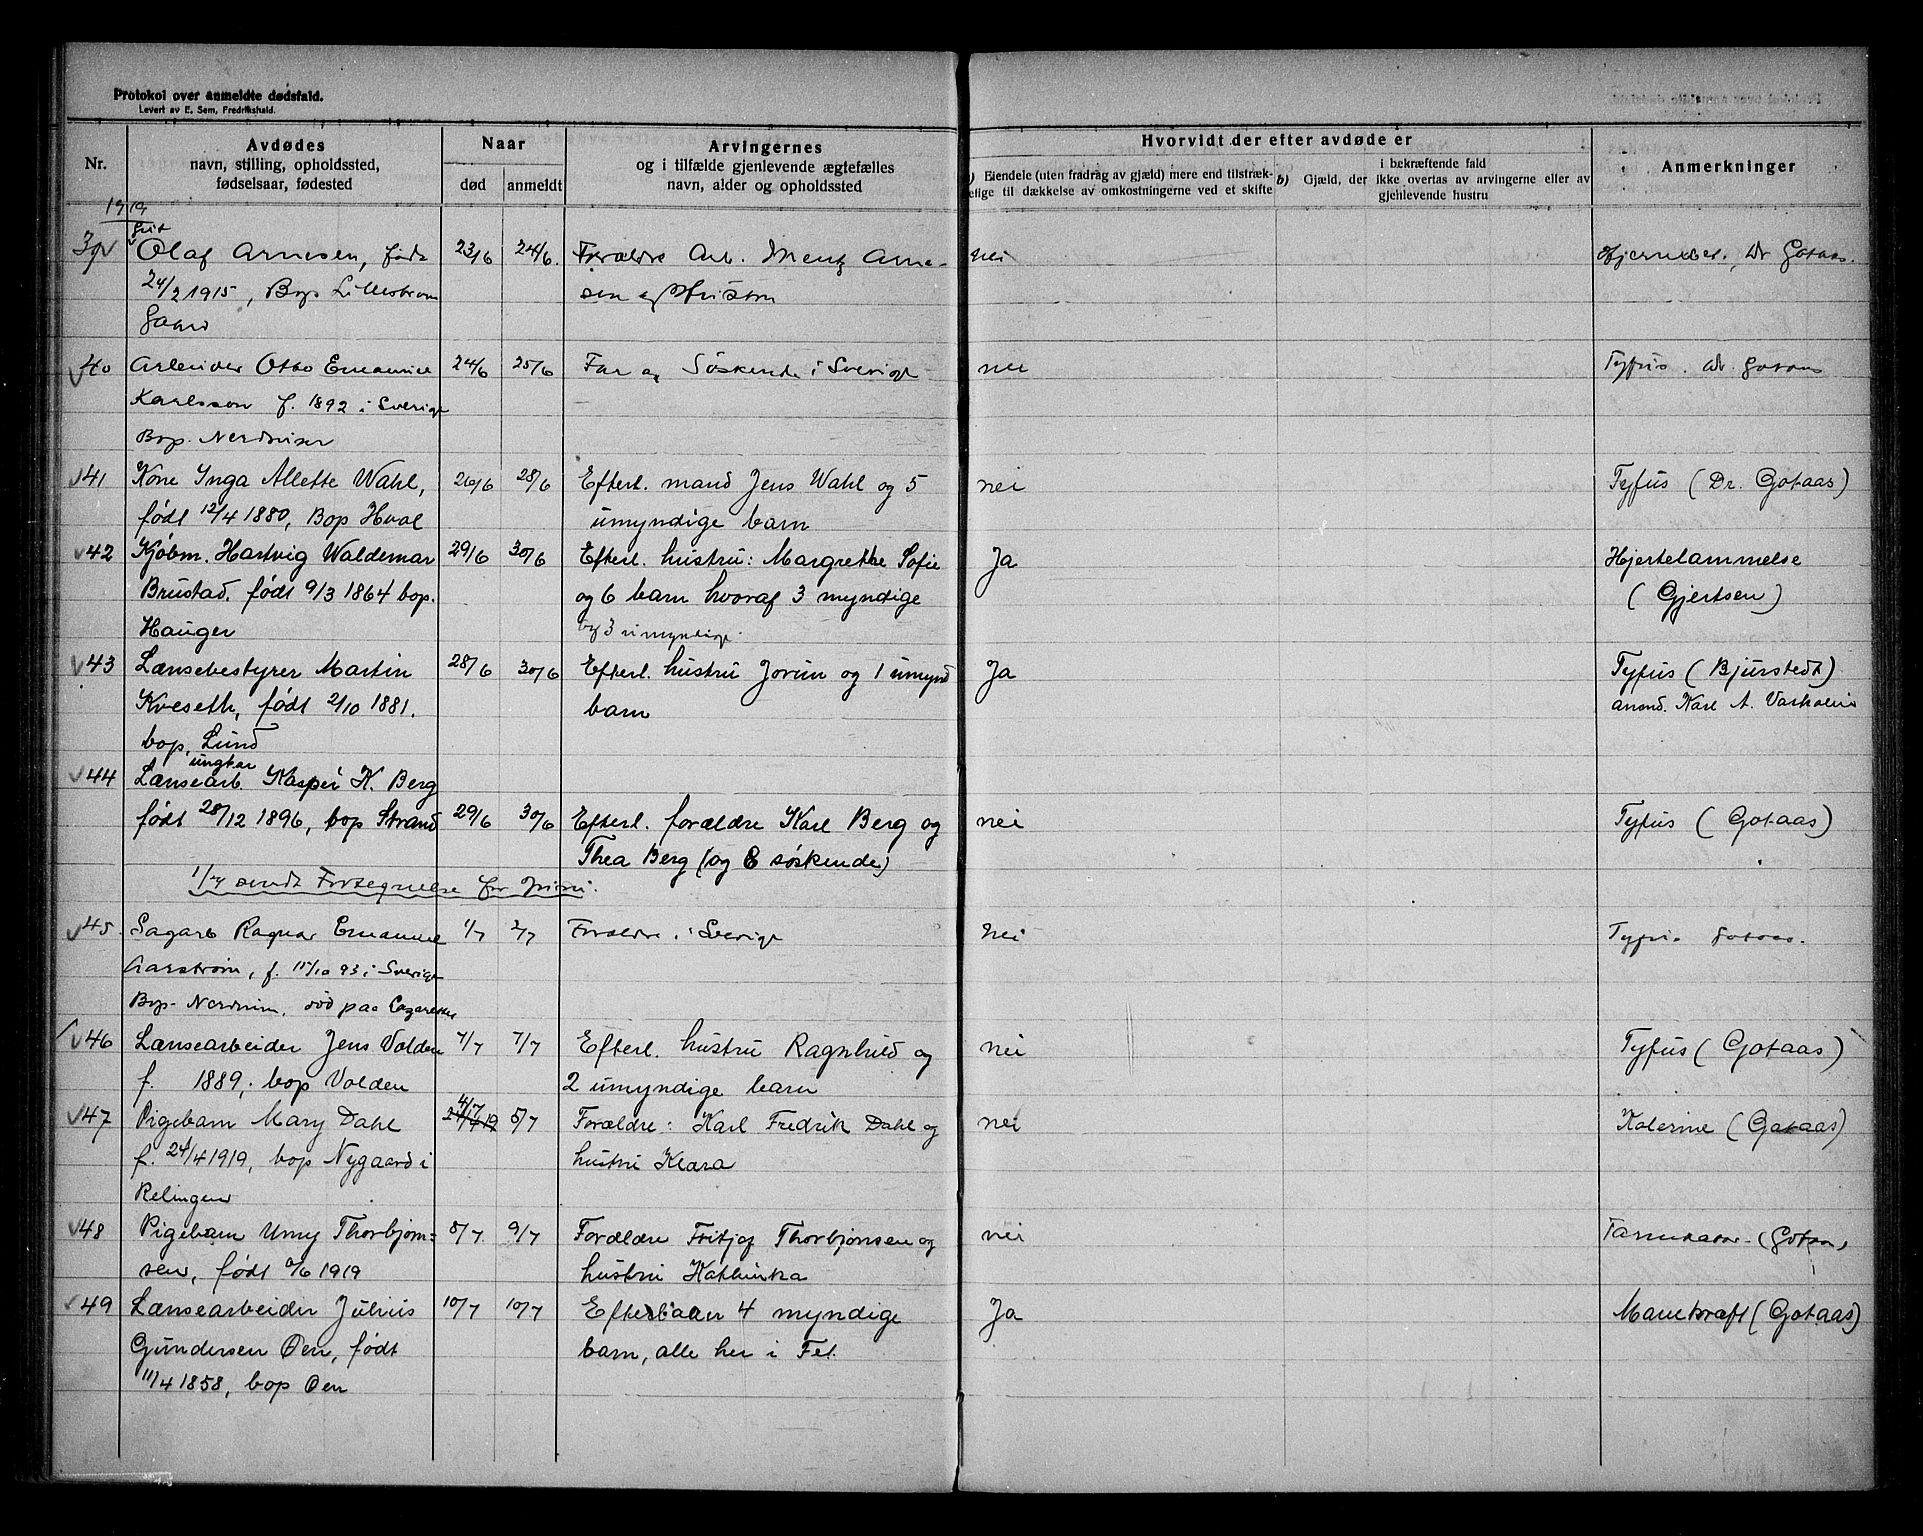 Protokol over anmeldte dødsfald.
Levert av E. Sem, Fredrikshald.
Nr.
Avdødes
navn, stilling, opholdssted,
fødselsaar, fødested
Naar
død
anmeldt
Arvingernes
og i tilfælde gjenlevende ægtefælles
navn, alder og opholdssted
Hvorvidt der efter avdøde er
a) Eiendele (uten fradrag av gjæld) mere end tilstræk-
kelige til dækkelse av omkostningerne ved et skifte
b) Gjæld, der i bekræftende fald
ikke overtas av arvingerne eller av
gjenlevende hustru
Anmerkninger
1919
39 Gut Olaf Arnesen, født 23/6 24/6. Forældre Arb. Mentz Arne- nei Dr Gotaas.
24/2 1915, Bop Lillestrøm sen og Hustru
40 Arbeider Otto Emanuel 24/6 25/6 Far og Søskende i Sverige nei Tyfus. Dr. Gotaas
Karlsson f. 1892 i Sverige
Bop.
41 Kone Inga Allette Wahl, 26/6 28/6 Efterl. mand Jens Wahl og 5 nei Tyfus (Dr. Gotaas)
født 12/4 1880, Bop Hval umyndige barn
42 Kjøbm. Hartvig Waldemar 29/6 30/6 Efterl. hustru: Margrethe Sofie Ja Hjertelammelse
Brustad. født 9/3 1864 bop. og 6 barn hvoraf 3 myndige (Gjertsen)
Hauger og 3 umyndige.
43 Lænsebestyrer Martin 28/6 30/6 Efterl. hustru Jorun og 1 umynd Ja Tyfus (Bjurstedt)
Kveseth, født 2/10 1881. barn anmd. Karl A.
bop, Lund
ungkar
44 Lænsearb. Kasper K. Berg
født 28/12 1896, bop Strand 29/6 30/6 Efterl. forældre Karl Berg og nei Tyfus (Gotaas)
Thea Berg (og 8 søskende)
1/7 sendt Fortegnelse for Juni.
45. Sagarb Ragnar Emanuel 1/7 2/7 Forældre i Sverige nei Gotaas.
f. 11/10 93 i Sverige
Bop. død paa Lazarettet
46 Lænsearbeider Jens Volden 7/7 7/7 Efterl. hustru Ragnhild og nei Tyfus (Gotaas)
f. 1889, bop Volden 2 umyndige barn
47 Pigebarn Mary Dahl 4/7 5/7 Forældre: Karl Fredrik Dahl og nei Kolerine (Gotaas)
f. 24/4 1919, bop Nygaard i hustru Klara
Relingen
48 Pigebarn Unny Thorbjørn= 8/7 9/7 Forældre Fritjof Thorbjønsen og nei (Gotaas)
sen, født 1919 hustru Kathinka
49 Lænsearbeider Julius 10/7 10/7 Efterlader 4 myndige Ja Mavekræft (Gotaas)
Gundersen Øen, født barn, alle her i Fet.
11/4 1858, bop Øen